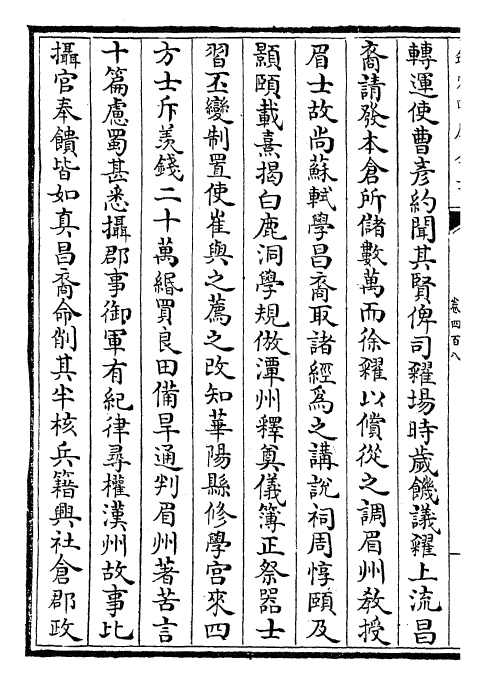 轉運使曹彦約聞其賢俾司糴場時歲饑議糴上流昌
裔請發本倉所儲數萬而徐糴以償從之調眉州教授
眉士故尚蘇軾學昌裔取諸經爲之講說祠周惇頤及
顥頤載熹揭白鹿洞學規倣潭州釋奠儀簿正祭器士
習丕變制置使崔與之薦之改知華陽縣修學宫來四
方士斥羡錢二十萬緡買良田備旱通判眉州著苦言
十篇慮蜀甚悉攝郡事御軍有紀律尋權漢州故事比
攝官奉饋皆如真昌裔命削其半核兵籍興社倉郡政
卷四百八